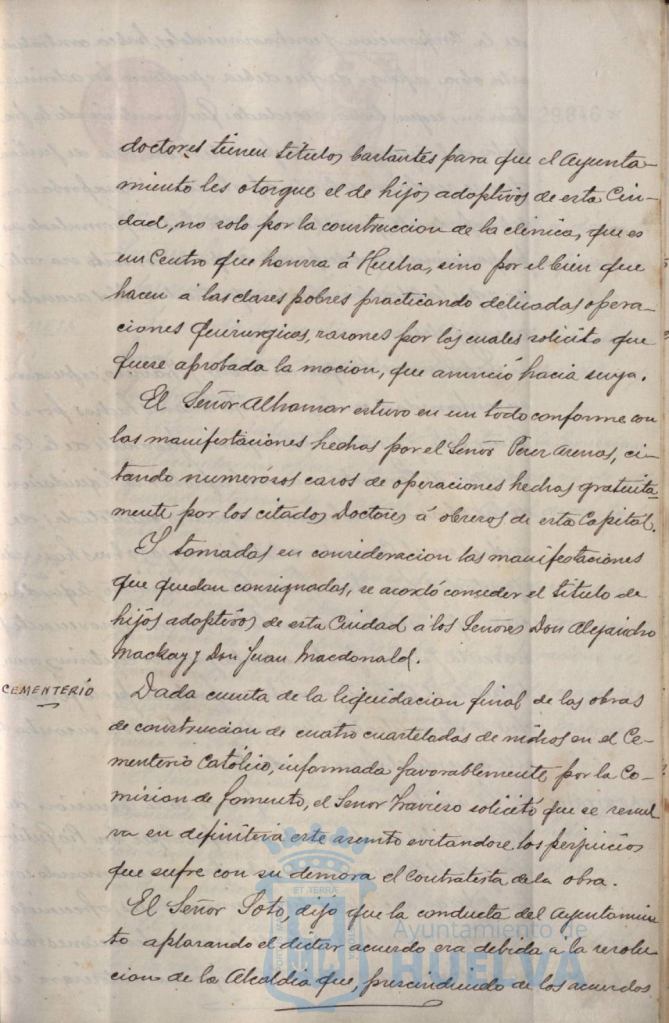 doctores tienen titulos bastantes para que el Ayunta-
miento les otorgue el de hijos adoptivos de esta Ciu-
dad, no solo por la construccion de la clinica, que es
un Centro que honra á Huelva, sino por el bien que
hacen á las clases pobres practicando delicadas opera-
ciones quirurgicas, razones por las cuales solicito que
fuese aprobada la mocion, que anunció hacia suya.
El Señor Alhamar estuvo en un todo conforme con
las manifestaciones hechas por el Señor Perez Arenas, ci-
tando numerósos casos de operaciones hechas gratuita-
mente por los citados Doctores á obreros de esta Capital.
Y tomadas en consideracion las manifestaciones
que quedan consignadas, se acordó conceder el titulo de
hijos adoptivos de esta Ciudad á los Señores Don Alejandro
Mackay y Don Juan Macdonald.
CEMENTERIO
Dada cuenta de la liquidacion final de las obras
de construccion de cuatro cuarteladas de nichos en el Ce-
menterio Católico, informada favorablemente por la Co-
mision de Fomento, el Señor Travieso solicitó que se resuel
va en definitiva este asunto evitandose los perjuicios
que sufre con su demora el Contratista de la obra.
El Señor Soto, dijo que la conducta del Ayuntamien
to aplazando el dictar acuerdo era debida á la resolu-
cion de la Alcaldia que, prescindiendo de los acuerdos
Ayuntamiento de
HUELVA